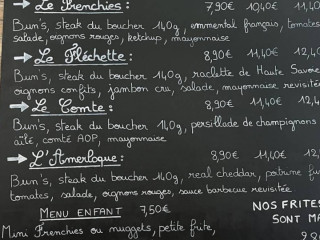 Le Frenchies : 7,90€ 10,40€ 11,40
Bun's, steak du boucher 140g, emmental français, tomates
salade, oignons rouges, ketchup, mayonnaise
La Fléchette : 8,90€ 11,40€ 12,4
Bun's, steak du boucher 140g, raclette de Haute Savoie
oignons confits, jambon cru, salade, mayonnaise revisitée
Le Comte : 8,90€ 11,40€ 12,4
Bun's, steak du boucher 140g, persillade de champignons
aillé, comté AOP, mayonnaise
L'Amerloque : 8,90€ 11,40€ 12,
Bun's, steak du boucher 140g, real cheddar, poitrine fu
tomates, salade, oignons rouges, sauce barbecue revisitée
MENU ENFANT 7,50€
Mini Frenchies ou nuggets, petite frite,
NOS FRITES
SONT MA